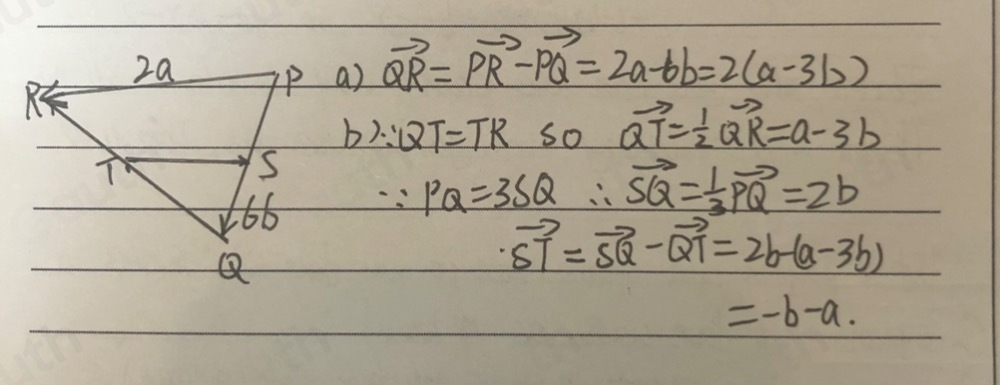 2a
R
P
T
S
6b
Q
a) QR⃗ = PR⃗ - PQ⃗ = 2a-6b=2(a-3b)
b) ∵QT=TR so QT⃗ = ½ QR⃗ = a-3b
∵ PQ=3SQ ∴ SQ⃗ = ⅓ PQ⃗ = 2b
·ST⃗ = SQ⃗ - QT⃗ = 2b-(a-3b)
=-b-a.